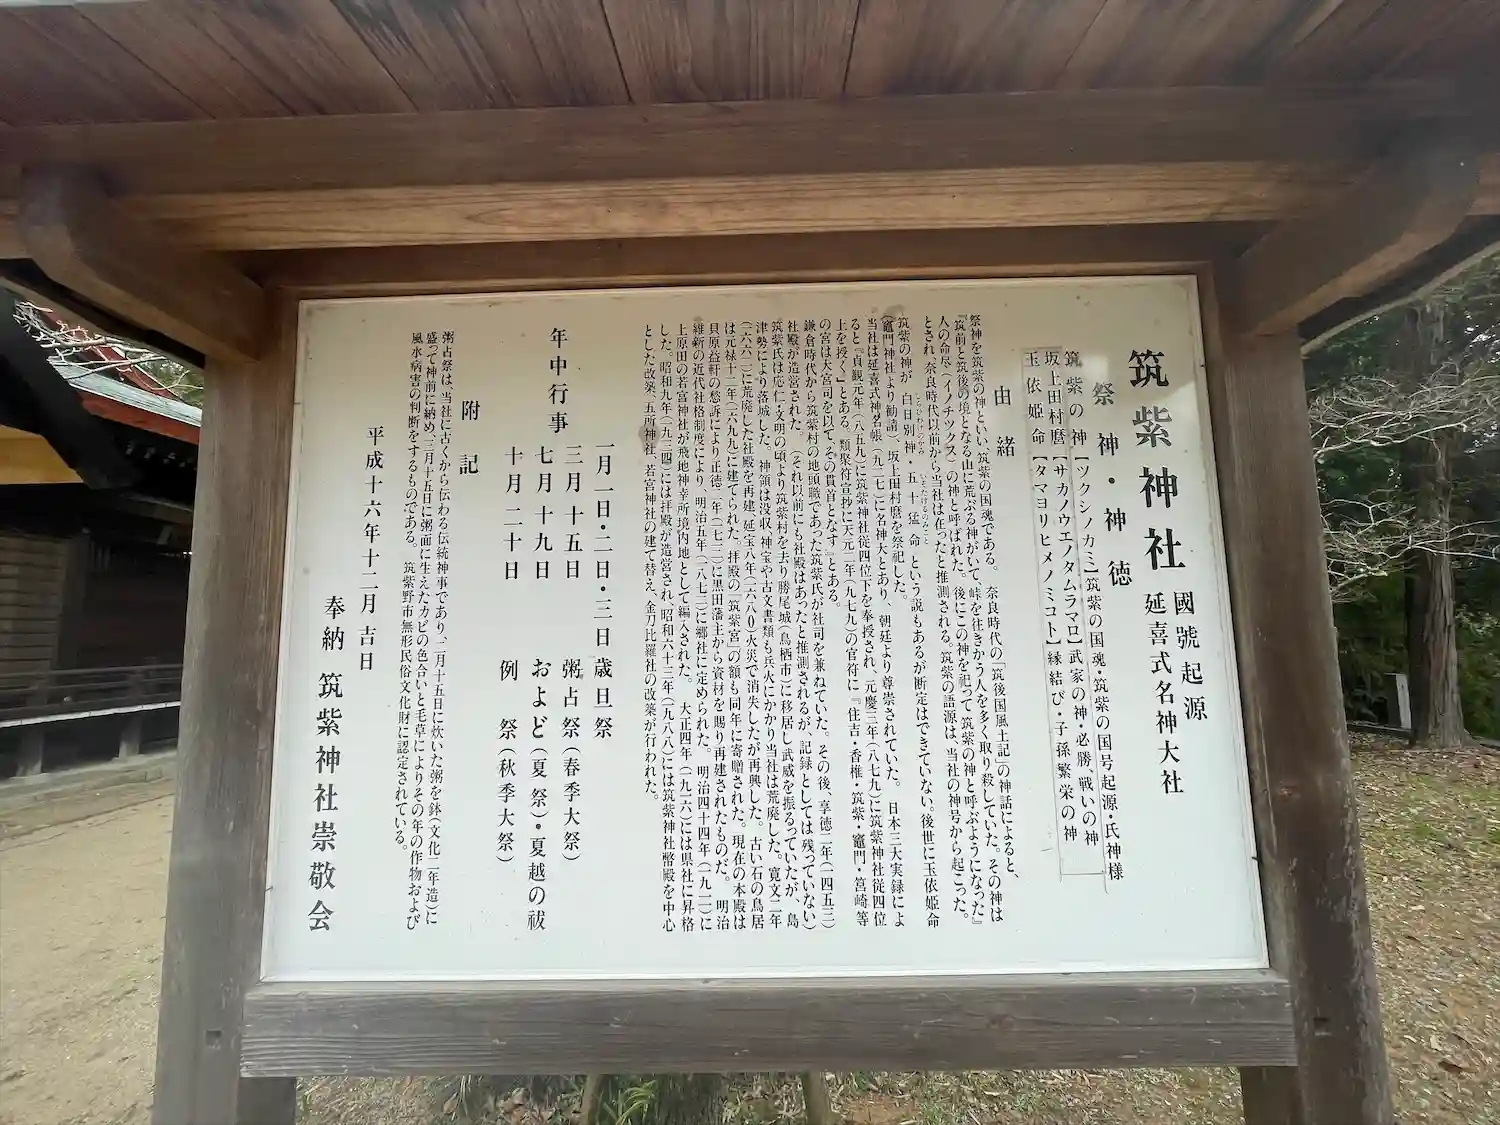 筑紫神社
國號起源
延喜式名神大社
祭神・神徳
筑紫の神【ツクシノカミ】筑紫の国魂・筑紫の国号起源・氏神様
坂上田村麿【サカノウエノタムラマロ】武家の神・必勝 戦いの神
玉依姫命【タマヨリヒメノミコト】縁結び・子孫繁栄の神
由緒
祭神を筑紫の神といい、筑紫の国魂である。 奈良時代の「筑後国風土記」の神話によると、
『筑前と筑後の境となる山に荒ぶる神がいて、峠を往きかう人を多く取り殺していた。その神は
人の命尽(イノチツクス)の神と呼ばれた。後にこの神を祀って筑紫の神と呼ぶようになった』
とされ、奈良時代以前から当社は在ったと推測される。筑紫の語源は、当社の神号から起こった。
筑紫の神が 白日別神・五十猛命 という説もあるが断定はできていない。後世に玉依姫命
(竈門神社より勧請)、坂上田村麿を祭祀した。
当社は延喜式神名帳(九二七)に名神大とあり、朝廷より尊崇されていた。 日本三大実録によ
ると『貞観元年(八五九)に筑紫神社従四位下を奉授され、元慶三年(八七九)に筑紫神社従四位
上を授く』とある。類聚符宣抄に天元二年(九七九)の官符に『住吉・香椎・筑紫・竈門・筥崎等
の宮は大宮司を以て、その貫首となす』とある。
鎌倉時代から筑紫村の地頭職であった筑紫氏が社司を兼ねていた。その後、享徳二年(一四五三)
社殿が造営された。 (それ以前にも社殿はあったと推測されるが、記録としては残っていない)
筑紫氏は応仁・文明の頃より筑紫村を去り勝尾城(鳥栖市)に移居し武威を振るっていたが、島
津勢により落城した。 神領は没収、神宝や古文書類も兵火にかかり当社は荒廃した。寛文二年
(一六六二)に荒廃した社殿を再建、延宝八年(一六八〇)火災で消失したが再興した。 古い石の鳥居
は元禄十二年(一六九九)に建てられた。拝殿の「筑紫宮」の額も同年に寄贈された。現在の本殿は
貝原益軒の愁訴により正徳二年(一七一二)に黒田藩主から資材を賜り再建されたものだ。 明治
維新の近代社格制度により、明治五年(一八七二)に郷社に定められた。 明治四十四年(一九一一)に
上原田の若宮神社が飛地神幸所境内地として編入された。 大正四年(一九一六)には県社に昇格
した。昭和九年(一九三四)には拝殿が造営され、昭和六十三年(一九八八)には筑紫神社幣殿を中心
とした改築、五所神社、若宮神社の建て替え、金刀比羅社の改築が行われた。
年中行事
一月一日・二日・三日 歳旦祭
三月十五日 粥占祭(春季大祭)
七月十九日 およど(夏祭)・夏越の祓
十月二十日 例 祭(秋季大祭)
附記
粥占祭は、当社に古くから伝わる伝統神事であり、二月十五日に炊いた粥を鉢(文化二年造)に
盛って神前に納め、三月十五日に粥面に生えたカビの色合いと毛草によりその年の作物および
風水病害の判断をするものである。 筑紫野市無形民俗文化財に認定されている。
平成十六年十二月吉日
奉納 筑紫神社崇敬会